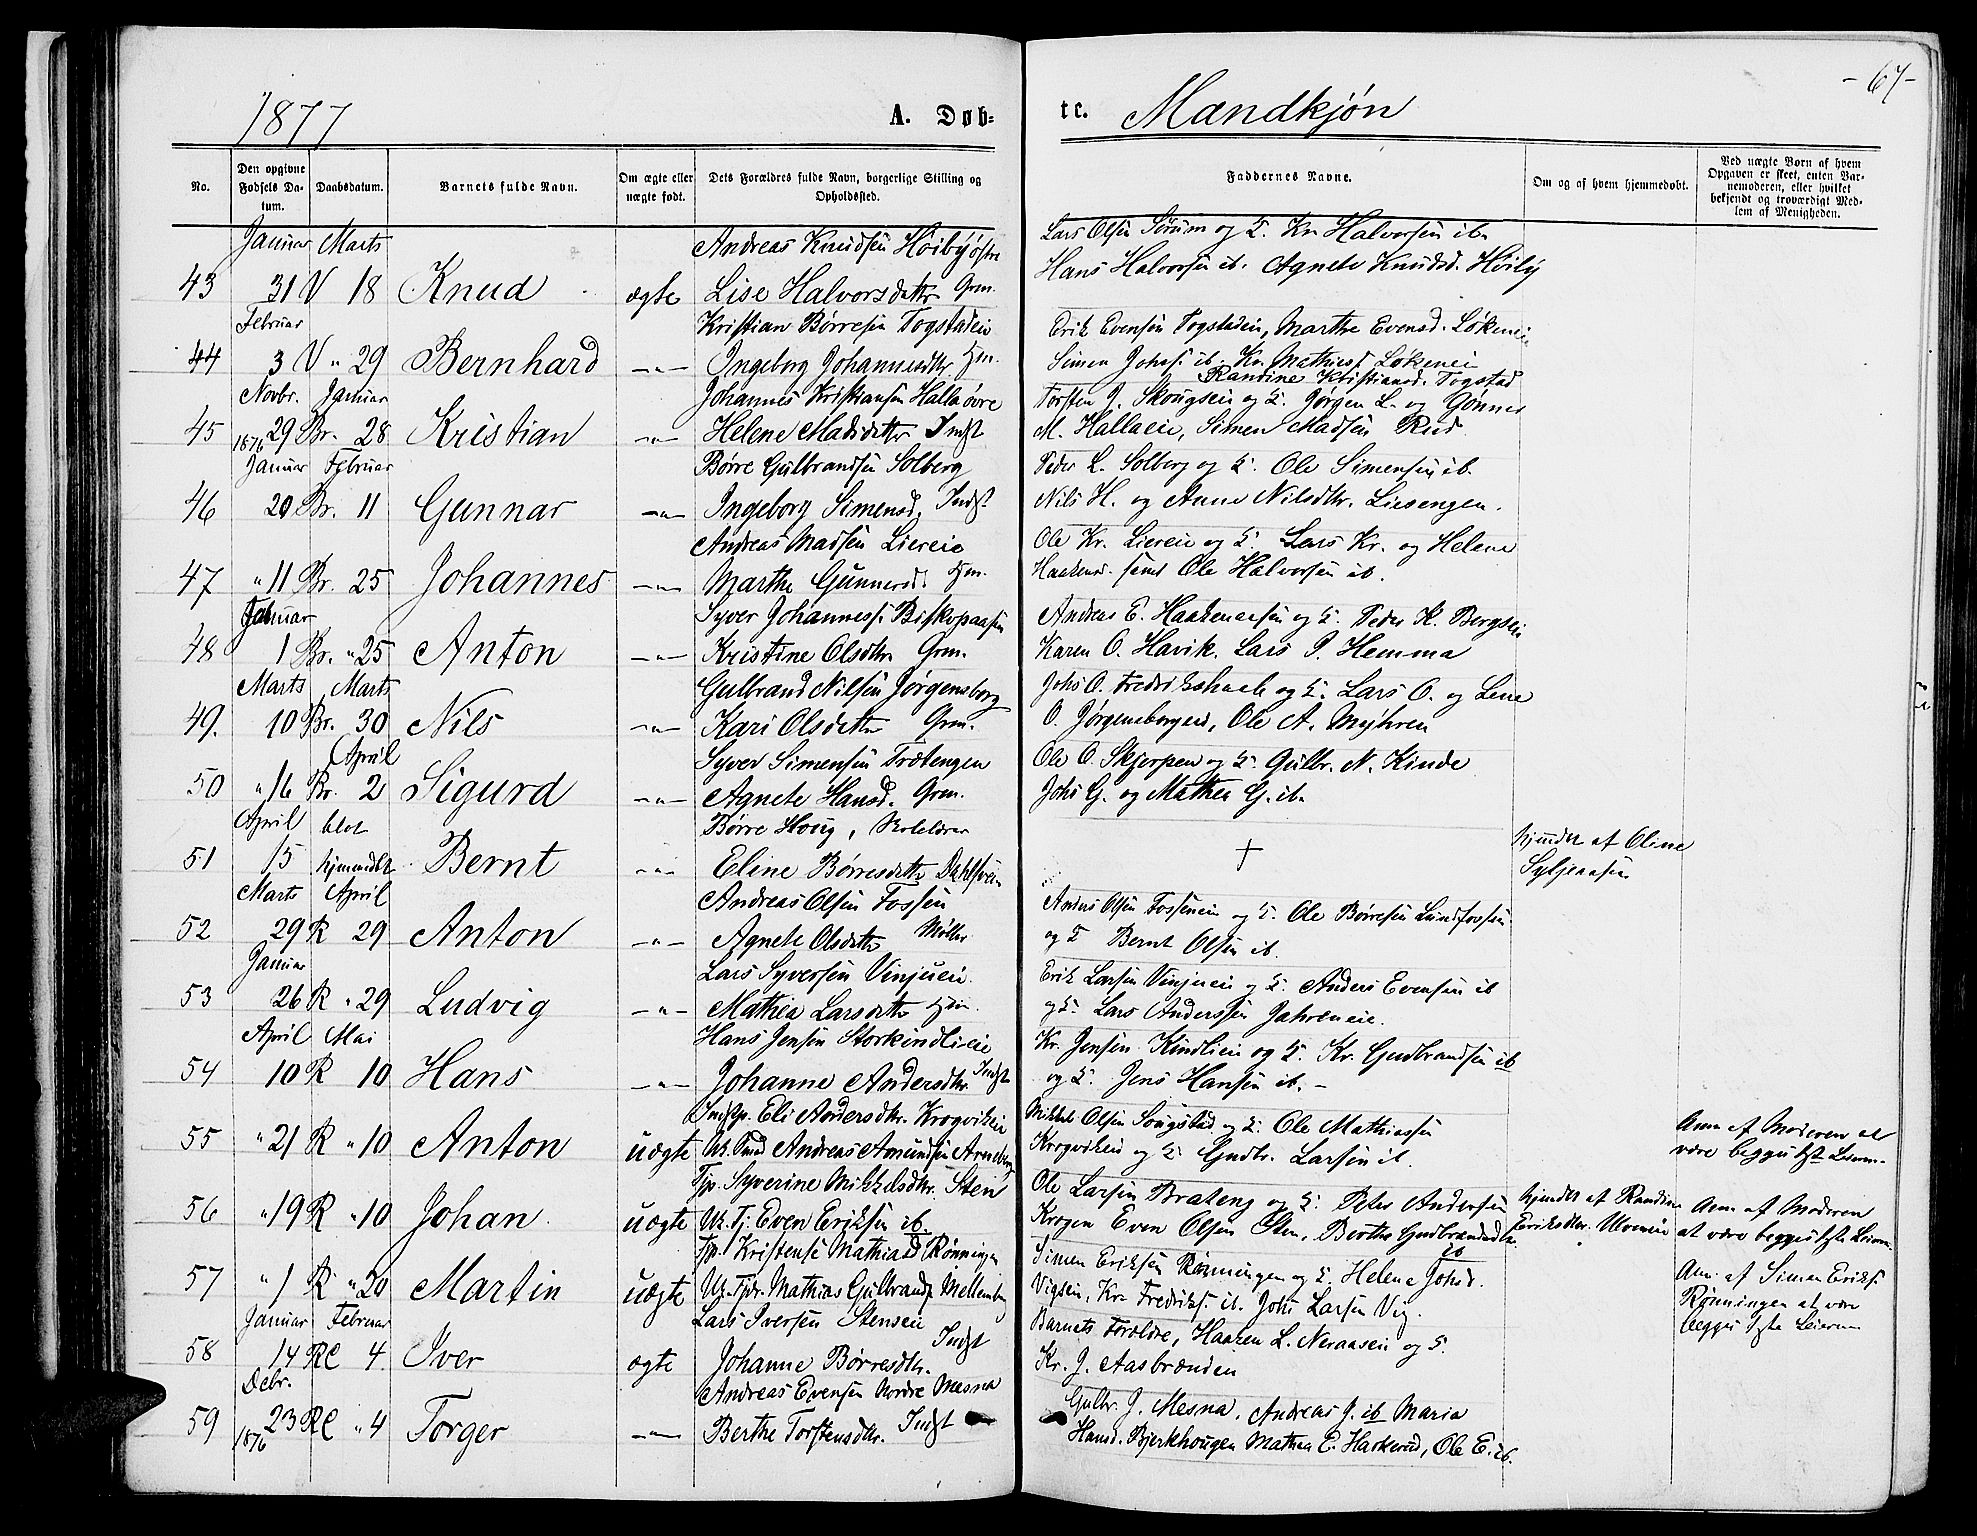 1877 A. Døb-
No.
Den opgivne Fødsels Datum.
Daabsdatum.
Barnets fulde Navn.
Om ægte eller uægte født.
Dets Forældres fulde Navn, borgerlige Stilling og Opholdssted.
Januar Marts Andreas Knudsen Høibyøstre
43 31 V 18 Knud ægte Lise Halvorsdattr Grm.
Februar Kristian Børresen Togstadeie
44 3 V " 29 Bernhard —"— Ingeborg Johannesdtr. Hjm.
Novbr. Januar Johannes Kristiansen Halla øvre
45 1876 29 Br. 28 Kristian —"— Helene Madsdattr Indst
Januar Februar Børre Gulbrandsen Solberg
46 20 Br. 11 Gunnar —"— Ingeborg Simensd. Indst
Andreas Madsen Liereie
47 " 11 Br. 25 Johannes —"— Marthe Gunnersd. Hjm.
Januar Syver Johanness. Biskopaasen
48 1 Br. " 25 Anton —"— Kristine Olsdtr. Grm.
Marts Marts Gulbrand Nilsen Jørgensborg
49. 10 Br. 30 Nils —"— Kari Olsdattr Grm.
April Syver Simensen Trætengen
50 " 16 Br. 2 Sigurd —"— Agnete Hansd. Grm.
April blot Børre Houg, Skolelærer
51 15 hjemmedøbt Bernt —"— Eline Børresdattr
Marts April Andreas Olsen Fossen
52 29 R 29 Anton —"— Agnete Olsdattr Møller
Januar Lars Syversen Vinjueie
53 26 R " 29 Ludvig —"— Mathea Larsdattr Hjm.
April Mai Hans Jensen Storkindlieie
54 10 R 10 Hans —"— Johanne Andersdtr. Indst
Indstp. Eli Andersdtr. Krogvikeie
55 " 21 R " 10 Anton uægte Uk. Smd Andreas Amundsen Arneberg
Tjp. Syverine Mikkelsdtr. Sten
56 " 19 R " 10 Johan uægte Uk. Tj. Even Eriksen ib.
Tjp. Kristense Mathiasd Rønningen
57 " 1 R " 20 Martin uægte Uk. Tjdr. Mathias Gulbrands. Mellemby
Januar Februar Lars Iversen Stenseie
58 14 RC 4 Iver ægte Johanne Børresdtr. Indst
Debr. Andreas Evensen Nordre Mesna
59 1876 23 RC " 4 Torger —"— Berthe Torstensdtr. Indst
te. Mandkjøn - 67 -
Faddernes Navne.
Om og af hvem hjemmedøbt.
Ved uægte Born af hvem Opgaven er skeet, enten Barnemoderen, eller hvilket bekjendt og troværdigt Medlem af Menigheden.
Lars Olsen Sørum og H. Kr. Halvorsen ib.
Hans Halvorsen ib. Agnete Knudsd. Høiby
Erik Evensen Togstadeie, Marthe Evensd. Løkeneie
Simen Johs. ib. Kr. Mathiess. Løkeneie
Randine Kristiansd. Togstad
Torsten J. Skougseie og H. Jørgen L. og Gønner
M. Hallaeie, Simen Madsen Rud
Peder L. Solberg og H. Ole Simensen ib.
Nils H. og Anne Nilsdtr. Liesengen.
Ole Kr. Liereie og H. Lars Kr. og Helene
Haakensd. samt Ole Halvorsen ib.
Andreas E. Haakenaasen og H. Peder K. Bergseie
Karen O. Havik. Lars P. Hemma
Johs O. Fredrikshaab og H. Lars O. og Lene
O. Jørgensborgeie, Ole A. Myhren
Ole O. Skjerpen og H. Gulbr. N. Kinde
Johs G. og Mathea G. ib.
† hjemdbt af Oline
Syljeaasen
Anders Olsen Fosseneie og H. Ole Børresen Lundfossen
og H Bernt Olsen ib.
Erik Larsen Vinjueie og H. Anders Evensen ib
og H. Lars Anderssen Jahreneie.
Kr. Jensen Kindlieie og H. Kr. Gudbrandsen ib
og H. Jens Hansen ib. -
Mikkel Olsen Sougstad og H. Ole Mathiassen
Krogvikeie og H Gudbr. Larsen ib.
Anm. af Moderen at
være begges 1ste Leierm.
Ole Larsen Brateng og H. Peter Andersen
Krogen Even Olsen Sten, Berthe Gudbrandsdtr.
ib
hjemdbt af Randine
Eriksdtr. Ulveneie
Anm. af Moderen
at være begges 1ste Leierm.
Simen Eriksen Rønningen og H. Helene Johsd.
Vigseie, Kr. Fredriks. ib. Johs Larsen Vig.
Anm. af Simen Eriks.
Rønningen at være
begges 1ste Leierm
Barnets Forældre, Haaken L. Neraaseie og H.
Kr. J. Aasbrænden
Gulbr. J. Mesna, Andreas J. ib Maria
Hansd. Bjerkhougen Mathea E. Haskerud, Ole E. ib.